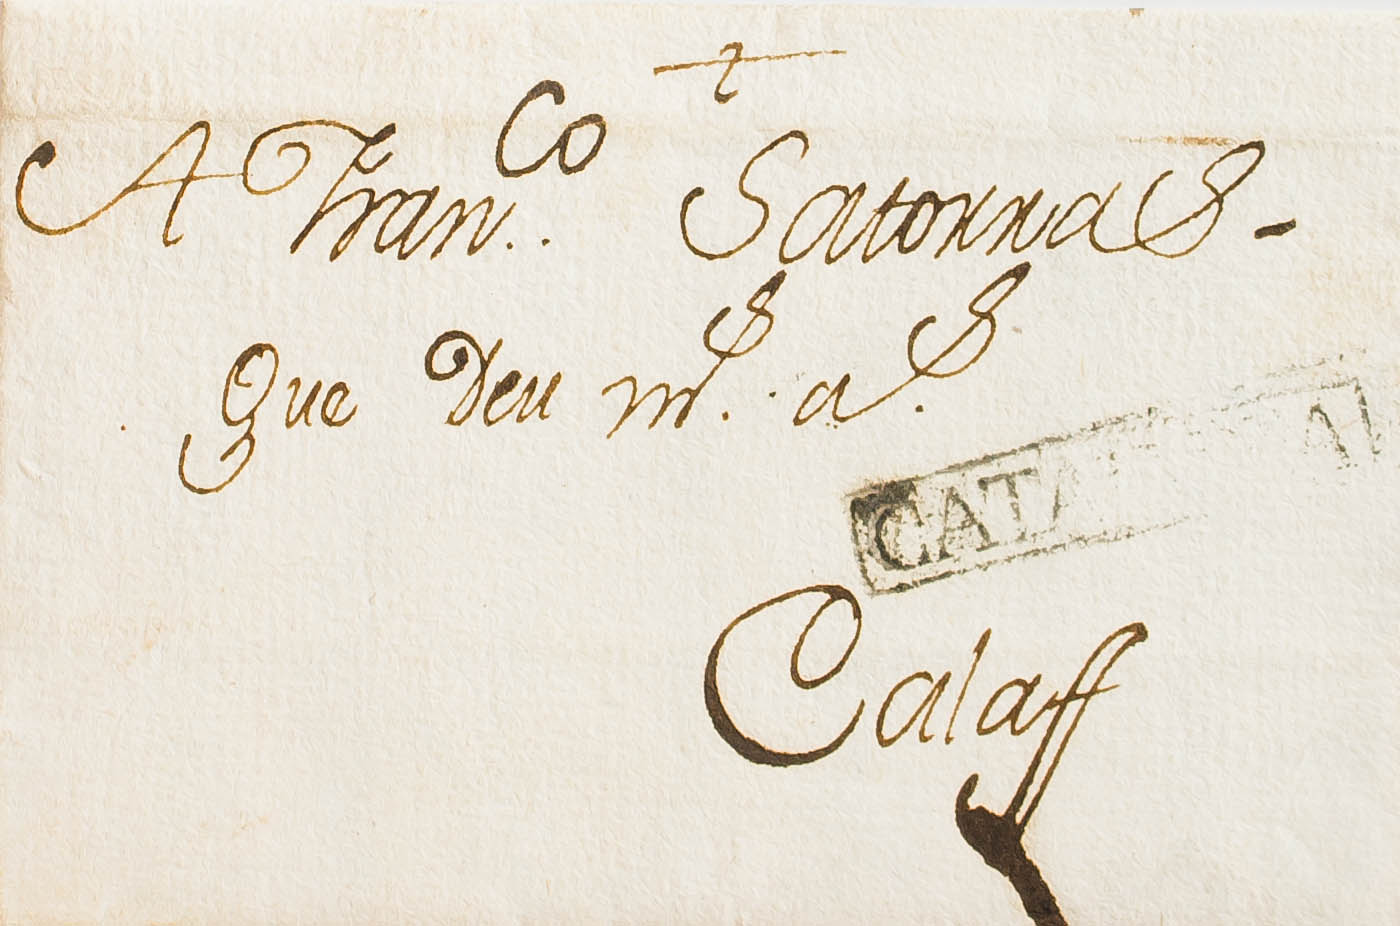 +
A Fran.co Satorras -
Que Deu m.s a.s
CATA A
Calaff